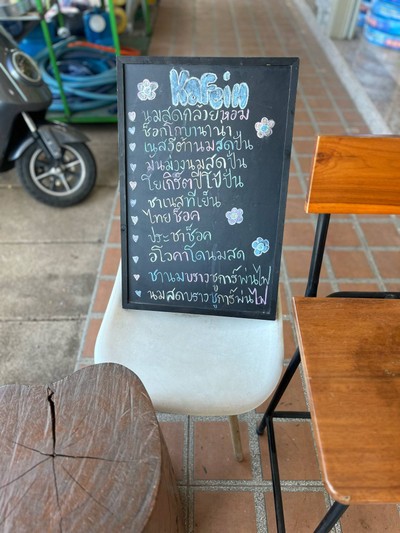 Kafein
นมสดกล้วยหอม
ช็อกโกบานาน่า
เนสวีต้านมสดปั่น
มันม่วงนมสดปั่น
โยเกิร์ตปีโป้ปั่น
ชาเนสทีเย็น
ไทยช็อค
ประชาช็อค
อโวคาโดนมสด
ชานมบราวชูการ์พ่นไฟ
นมสดบราวชูการ์พ่นไฟ